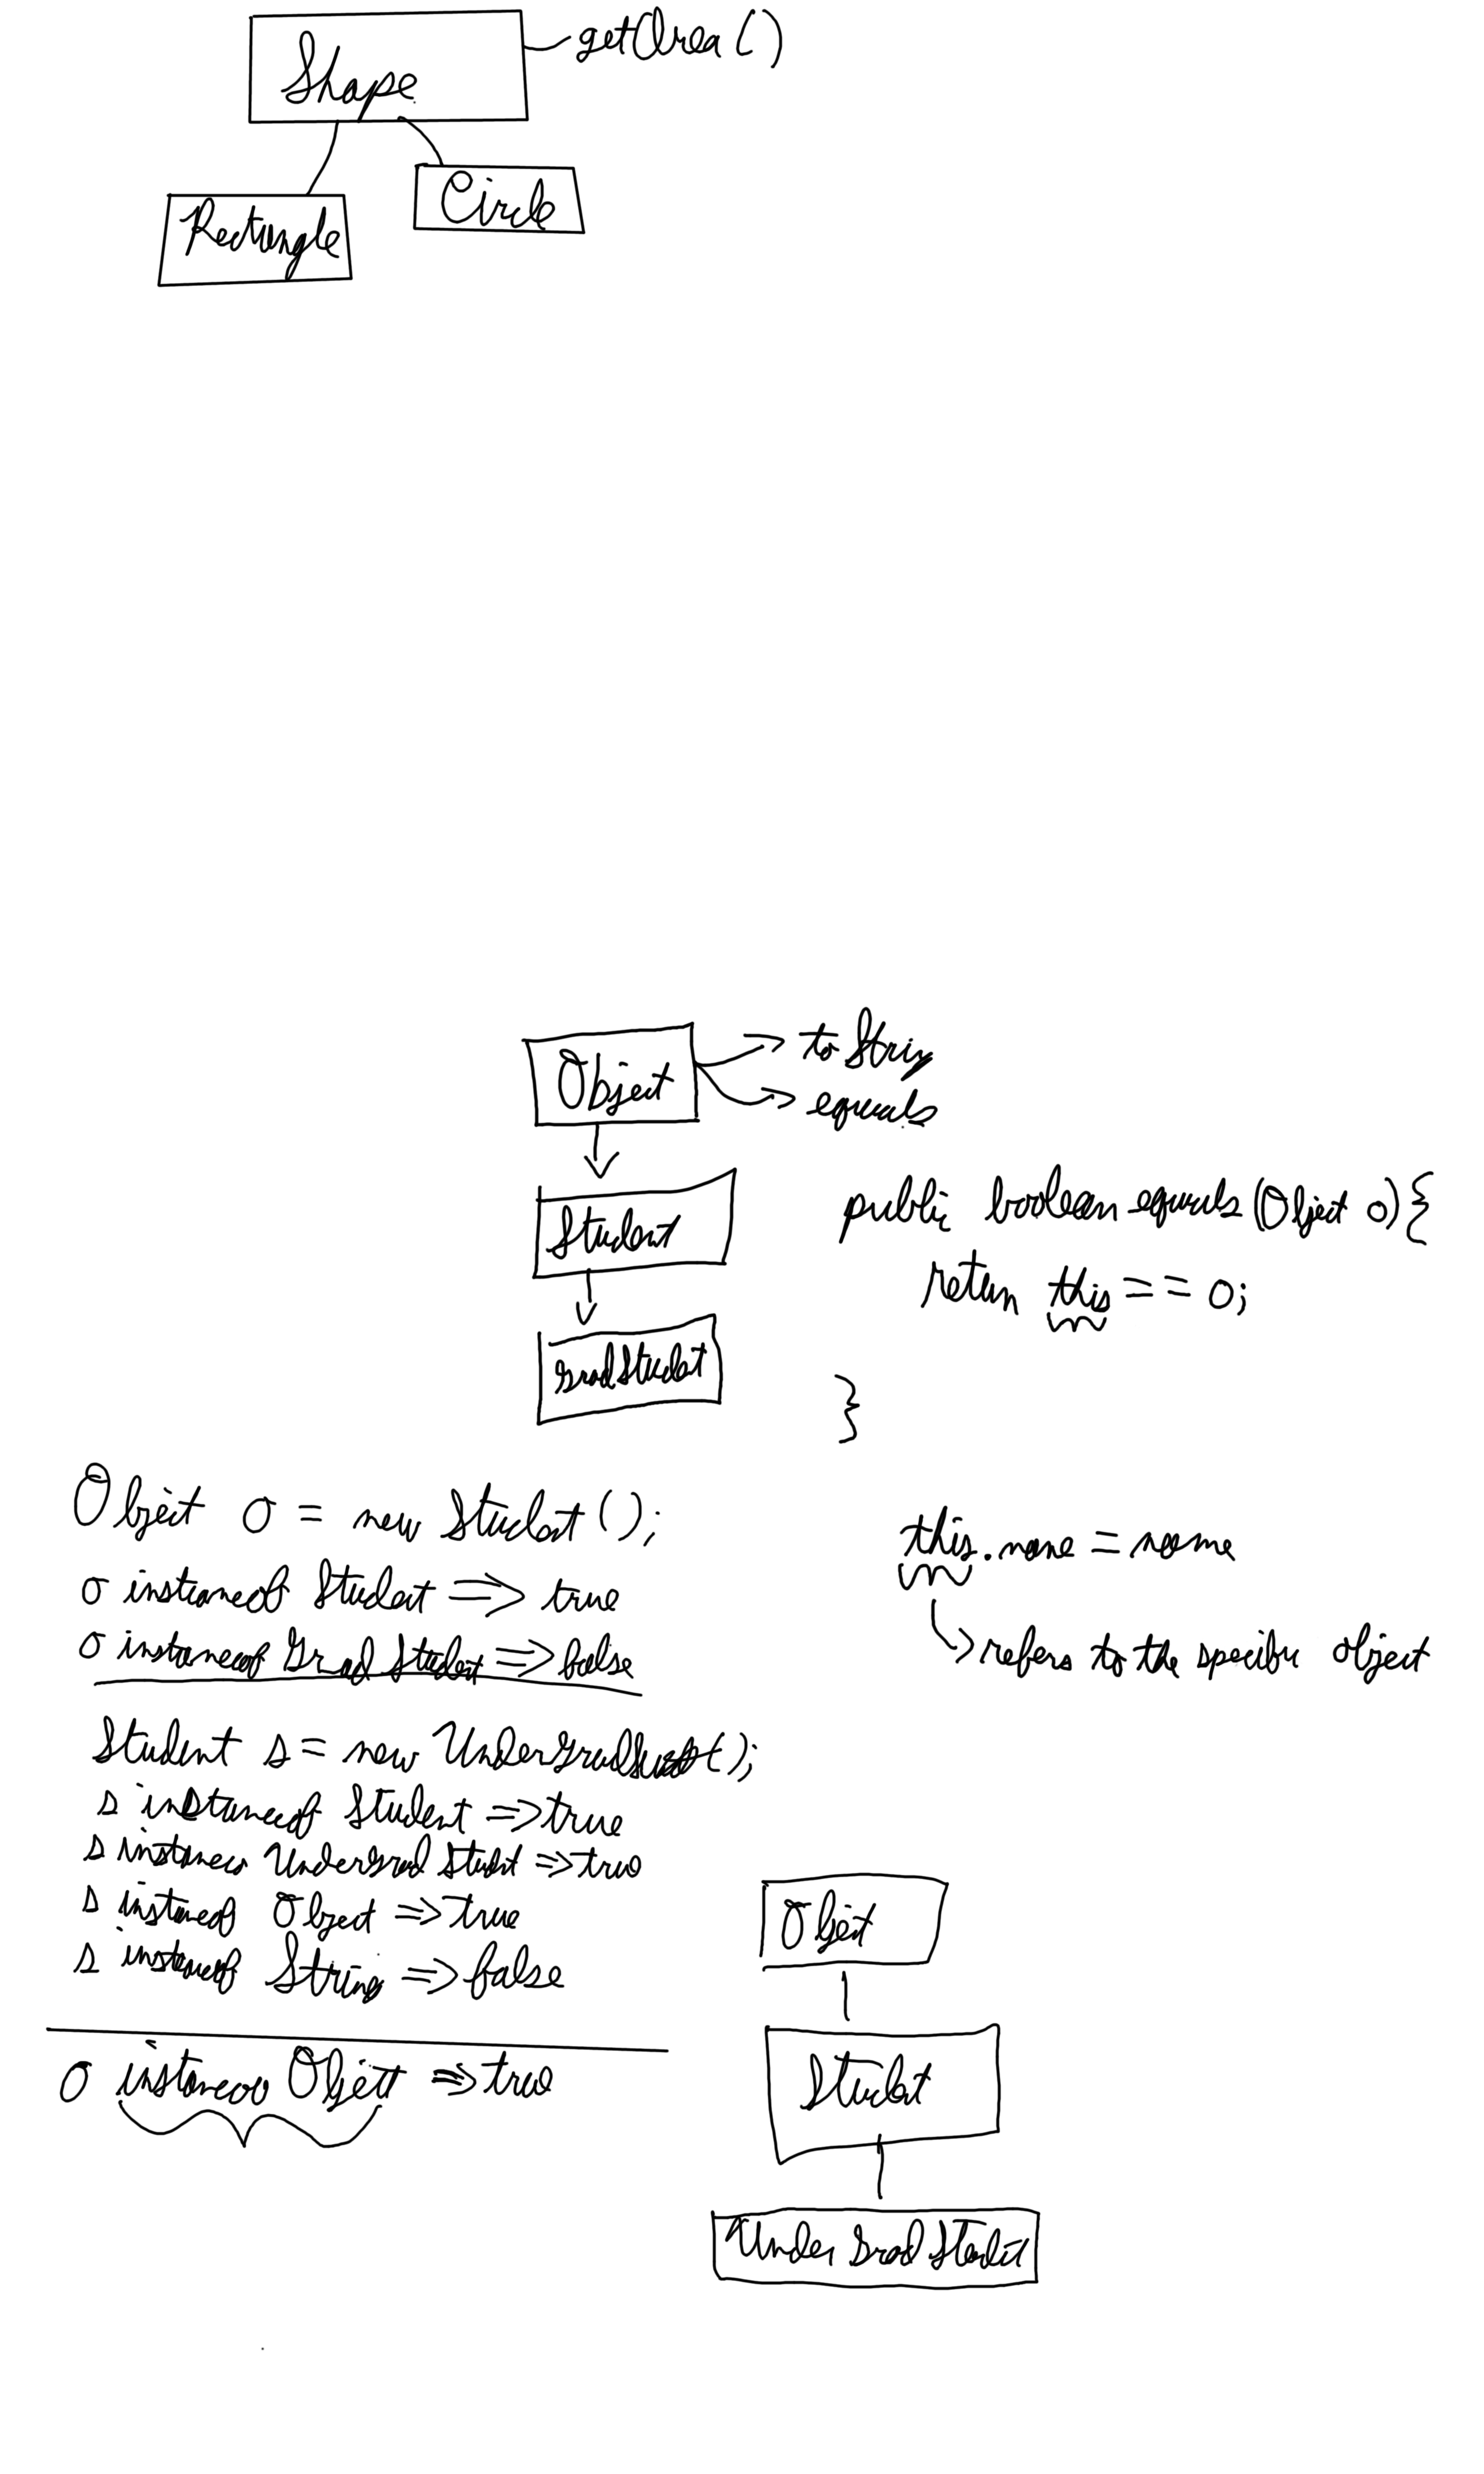 Shape
getArea()
Rectangle
Circle
Object
toString
equals
Student
public boolean equals(Object o){
return this == o;
GradStudent
}
Object o = new Student();
o instanceof Student => true
o instanceof Grad Student => false
this.name = name
refers to the specific object
Student s = new UnderGradStudent();
s instanceof Student => true
s instanceof UnderGrad Student => true
s instanceof Object => true
s instanceof String => false
Object
o instanceof Object => true
Student
Under Grad Student